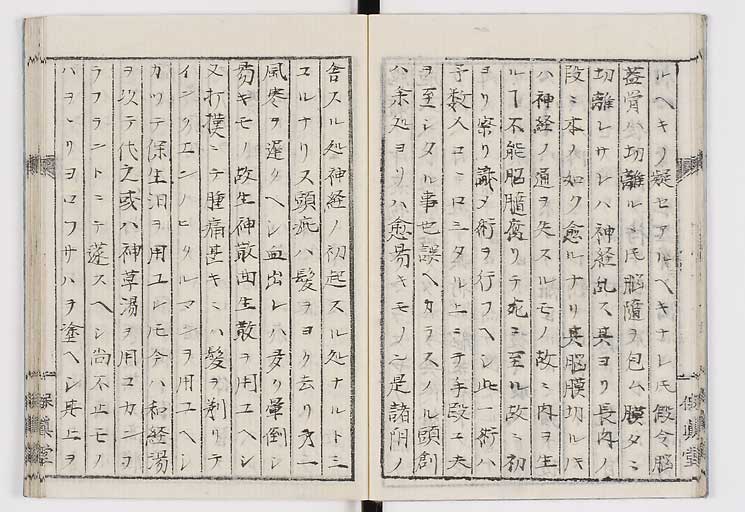 ルヘキノ疑セアルヘキナレ𪜈假令脳
蓋骨ハ切離ルニ𪜈脳隨ヲ包ム膜タニ
切離レサレハ神経乱ス其ヨリ長肉ノ
段ニ本ノ如ク愈ルナリ其脳膜切ル𪜈
ハ神経ノ通ヲ失スルモノ故ニ肉ヲ生
ルヿ不能脳髓腐リテ死ニ至ル故ニ初
ヨリ察リ識メ術ヲ行フヘシ此一術ハ
予数人コヽロミタル上ニテ手段ニ夫
ヲ至シタル事也誤ヘカラスノル頭創
ハ余処ヨリハ愈易キモノ是諸陰ノ
舎スル処神経ノ初起スル処ナルト三
ユルナリス頭疵ハ髪ヲヨク去リ
風寒ヲ避クヘシ血出レハ多ク暈倒シ
易キモノ故生神散曲生散ヲ用ユヘシ
又打撲ニテ腫痛甚キニハ髪ヲ剃リテ
インクエンノヒタルマンヲ用ユヘシ
カツテ保生泪ヲ用ユレ𪜈今ハ和経湯
ヲ以テ代之或ハ神草湯ヲ用ユカニヲ
ラフラントニテ蓬スヘシ尚不止モノ
ハヲヽリヨロフサハヲ塗ヘシ其上ヲ
保真堂